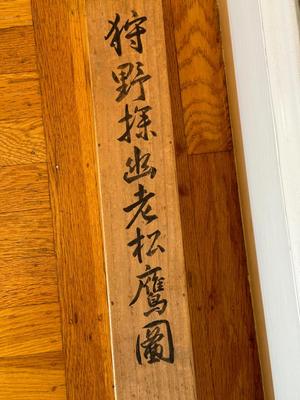 狩野探幽老松鷹圖